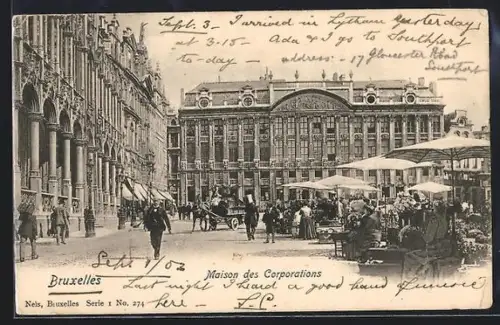 Bruxelles
Sept. 3 - I arrived in Lytham yesterday
at 3-15 - Ada & I go to Southport
to-day - address - 17 Gloucester Road
Southport
Sept 1/02
Bruxelles
Maison des Corporations
Last night I heard a good hand
here -
Nels, Bruxelles Serie 1 No. 274